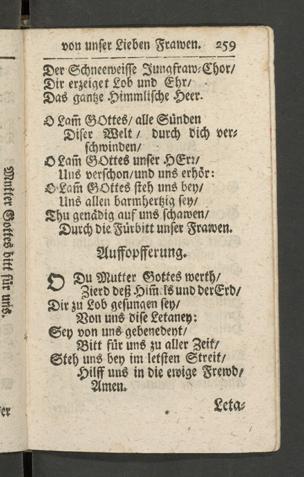 von unser Lieben Frawen. 259
Der Schneeweisse Jungfraw-Chor/
Dir erzeiget Lob und Ehr/
Das gantze Himmlische Heer.
O Lam̃ GOttes/ alle Sünden
Diser Welt/ durch dich ver-
schwinden/
O Lam̃ GOttes unser HErr/
Uns verschon/und uns erhör:
O Lam̃ GOttes steh uns bey/
Uns allen barmhertzig sey/
Thu genädig auf uns schawen/
Durch die Fürbitt unser Frawen.
Auffopfferung.
O Du Mutter Gottes werth/
Zierd deß Him̃els und der Erd/
Dir zu Lob gesungen sey/
Von uns dise Letaney:
Sey von uns gebenedeyt/
Bitt für uns zu aller Zeit/
Steh uns bey im letsten Streit/
Hilff uns in die ewige Frewd/
Amen.
Leta-
Mutter Gottes bitt für uns.